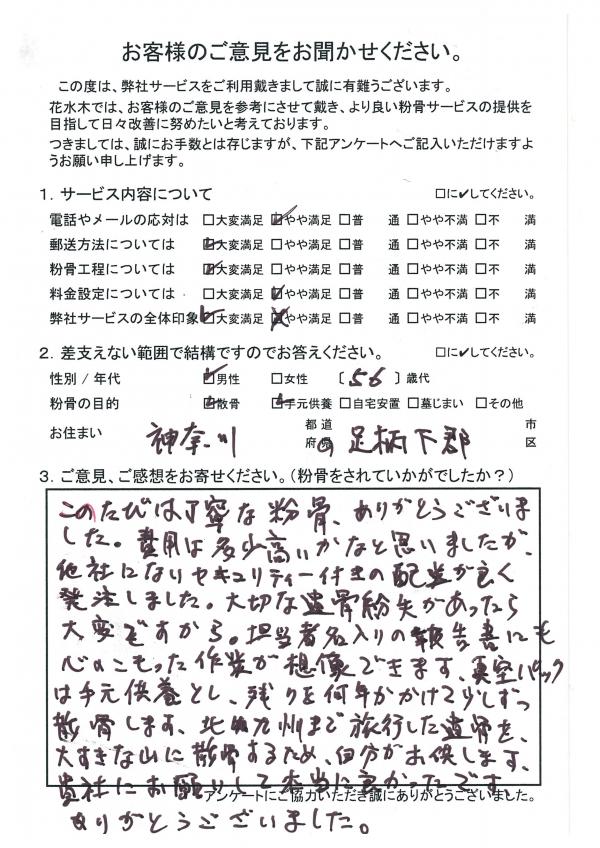 お客様のご意見をお聞かせください。
この度は、弊社サービスをご利用戴きまして誠に有難うございます。
花水木では、お客様のご意見を参考にさせて戴き、より良い粉骨サービスの提供を
目指して日々改善に努めたいと考えております。
つきましては、誠にお手数とは存じますが、下記アンケートへご記入いただけますよ
うお願い申し上げます。
1．サービス内容について □に✓してください。
電話やメールの応対は □大変満足 ☑やや満足 □普 通 □やや不満 □不 満
郵送方法については ☑大変満足 □やや満足 □普 通 □やや不満 □不 満
粉骨工程については ☑大変満足 □やや満足 □普 通 □やや不満 □不 満
料金設定については □大変満足 ☑やや満足 □普 通 □やや不満 □不 満
弊社サービスの全体印象 ☑大変満足 ☒やや満足 □普 通 □やや不満 □不 満
2．差支えない範囲で結構ですのでお答えください。 □に✓してください。
性別 / 年代 ☑男性 □女性 〔 56 〕歳代
粉骨の目的 ☑散骨 ☑手元供養 □自宅安置 □墓じまい □その他
お住まい 神奈川 都道府県 足柄下郡 市区
3．ご意見、ご感想をお寄せください。（粉骨をされていかがでしたか？）
このたびは丁寧な粉骨、ありがとうございま
した。費用は多少高いかなと思いましたが、
他社にないセキュリティー付きの配送が良く
発注しました。大切な遺骨紛失があったら
大変ですから。担当者名入りの報告書にも
心のこもった作業が想像できます、真空パック
は手元供養とし、残りを何年かかけて少しずつ
散骨します、北は九州まで旅行した遺骨を、
大すきな山に散骨するため、自分がお供します、
貴社にお願いして本当に良かったです、
アンケートにご協力いただき誠にありがとうございました。
ありがとうございました。